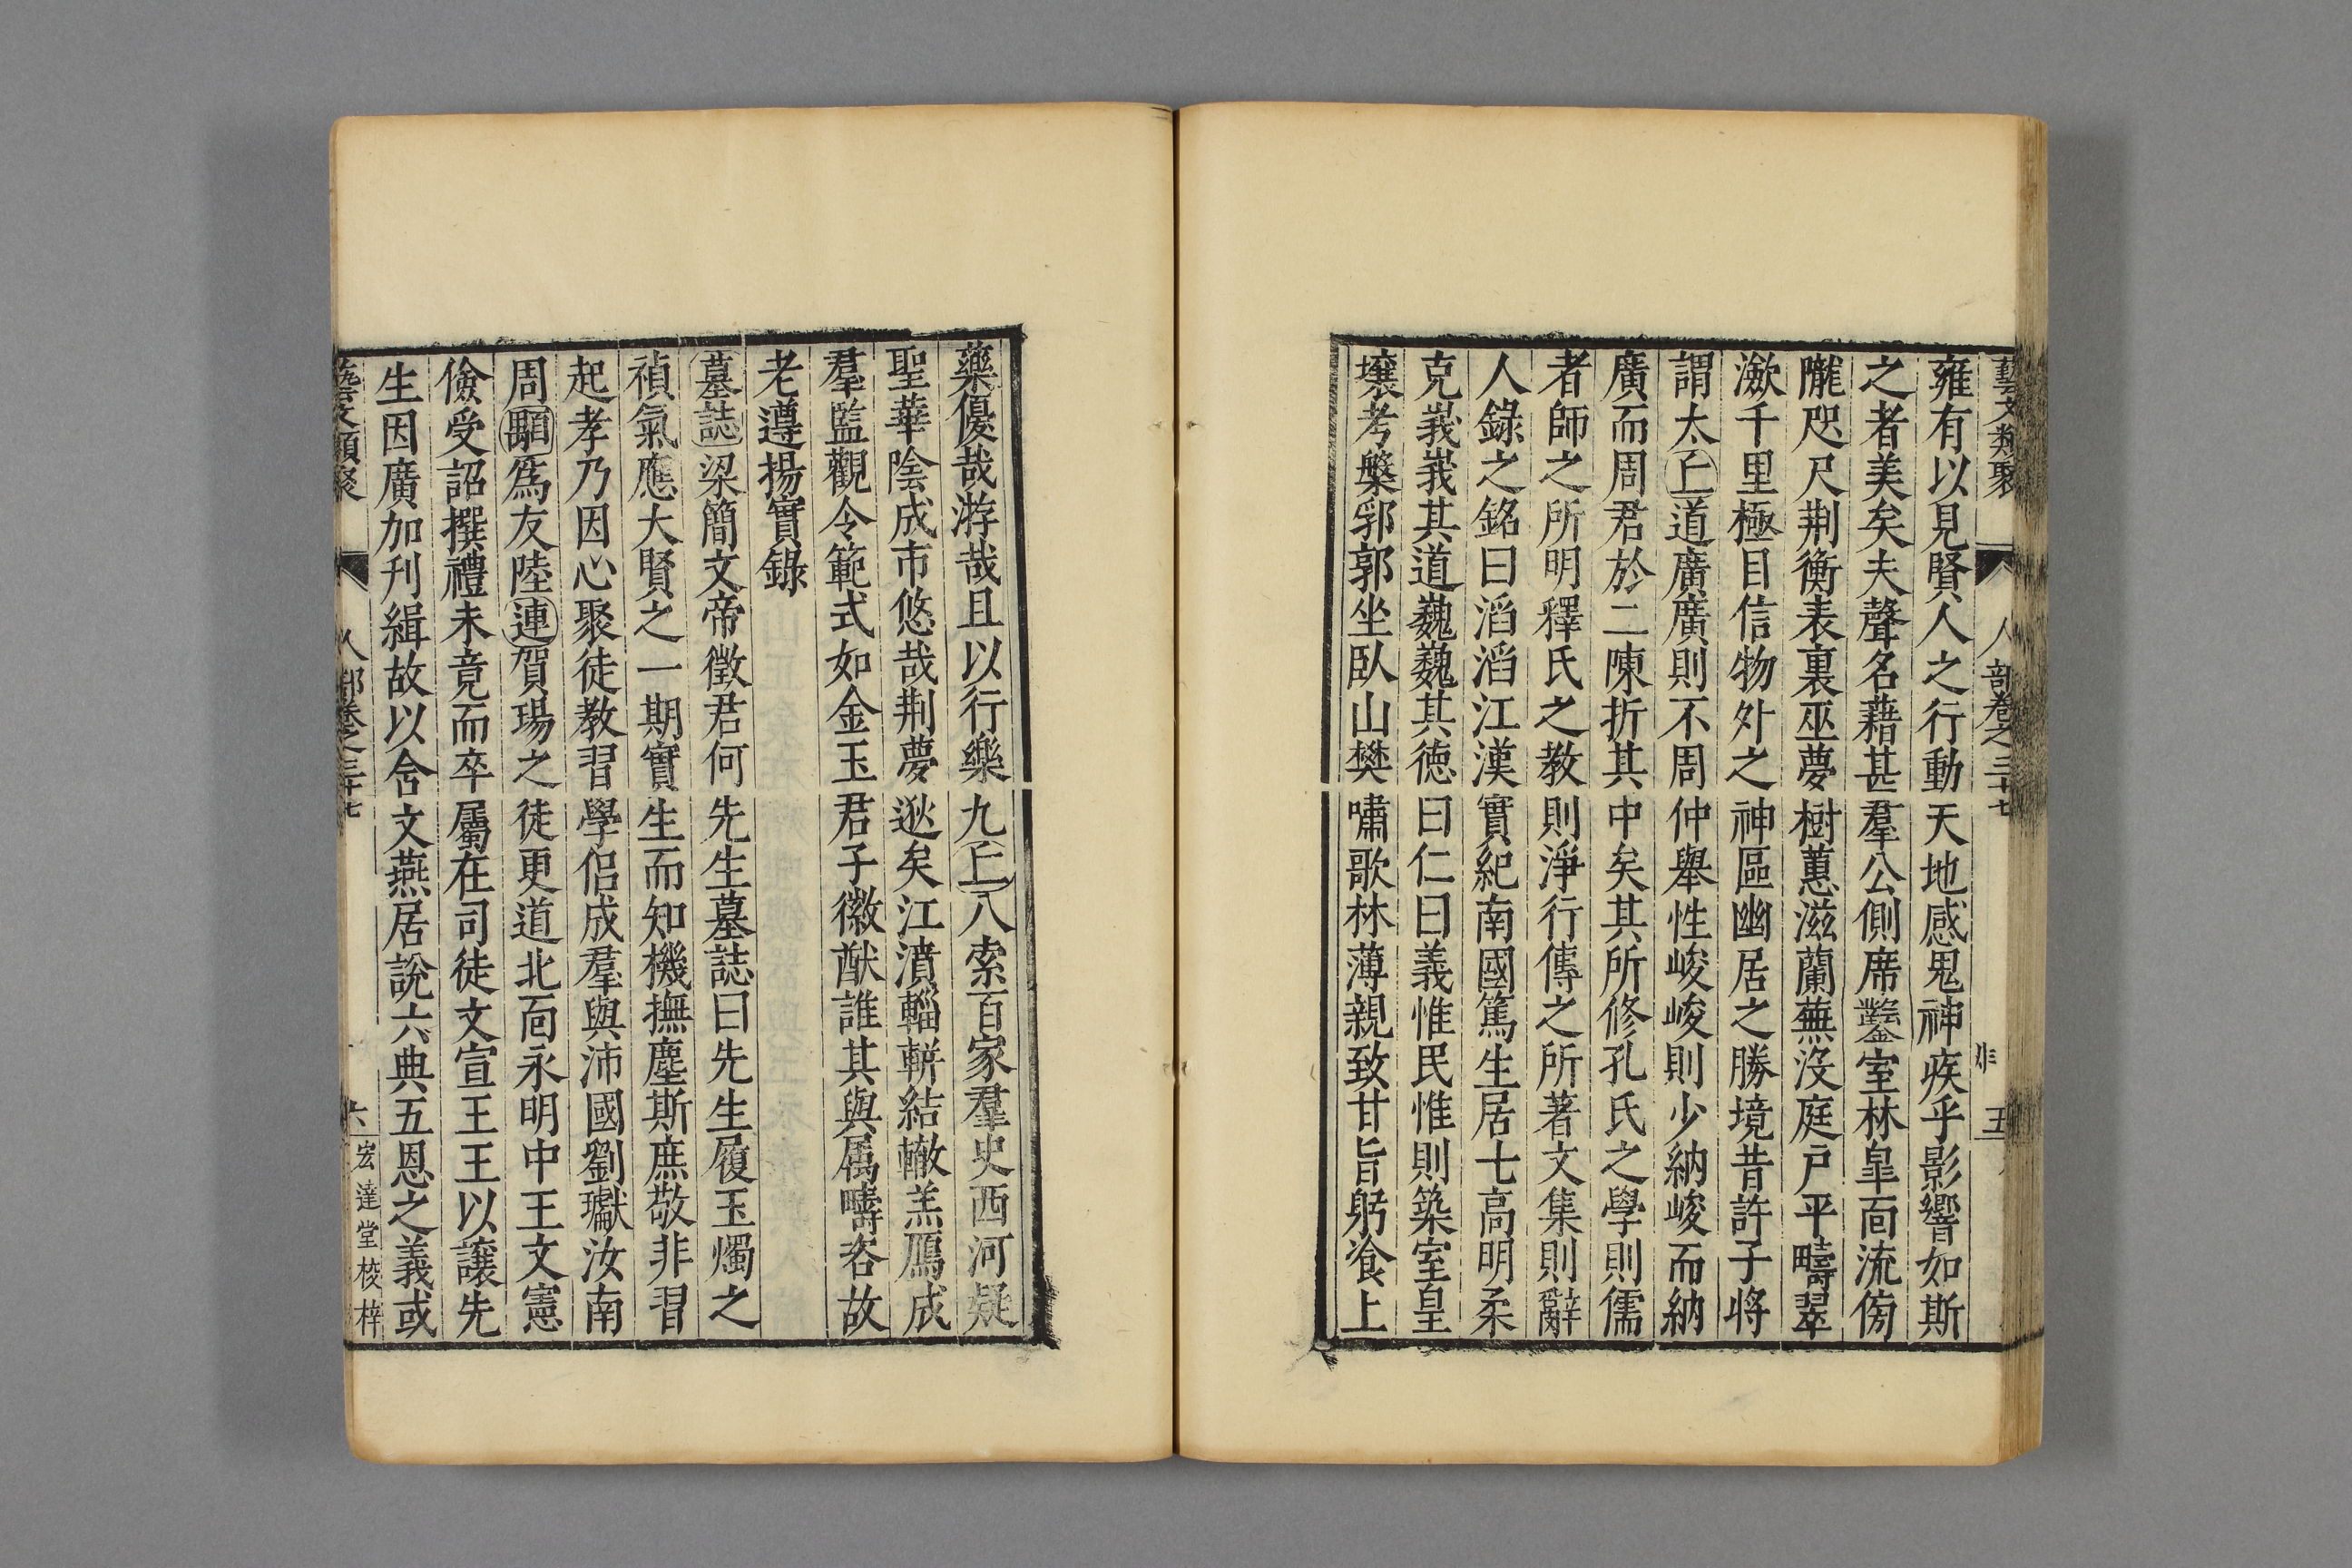 藝文類聚 人部卷之三十七 五
雍有以見賢人之行動天地感鬼神疾乎影響如斯
之者美矣夫聲名藉甚羣公側席鑿室林皐面流傍
隴咫尺荆衡表裏巫夢樹蕙滋蘭蕪沒庭戸平疇翠
潡千里極目信物外之神區幽居之勝境昔許子将
謂太丘道廣廣則不周仲舉性峻峻則少納峻而納
廣而周君於二陳折其中矣其所修孔氏之學則儒
者師之所明釋氏之教則淨行傳之所著文集則辭
人錄之銘曰滔滔江漢實紀南國篤生居士高明柔
克峩峩其道巍巍其徳曰仁曰義惟民惟則築室皇
壤考槃郛郭坐臥山樊嘯歌林薄親致甘旨躬飡上
藥優哉游哉且以行樂九丘八索百家羣史西河疑
聖華陰成市悠哉荆夢逖矣江濆輜軿結轍羔鴈成
羣監觀令範式如金玉君子徽猷誰其與属疇咨故
老遵揚實錄
墓誌梁簡文帝徵君何先生墓誌曰先生履玉燭之
禎氣應大賢之一期實生而知機撫塵斯庶敬非習
起孝乃因心聚徒教習學侶成羣與沛國劉瓛汝南
周顒爲友陸連賀瑒之徒更道北面永明中王文憲
儉受詔撰禮未竟而卒屬在司徒文宣王王以讓先
生因廣加刋緝故以含文燕居說六典五恩之義或
藝文類聚 人部卷之三十七 六 宏達堂校梓